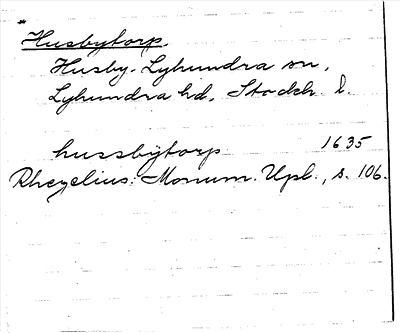 *
Husbytorp.
Husby-Lyhundra sn,
Lyhundra hd, Stockh. l.
hussbÿtorp 1635
Rhezelius: Monum. Upl., s. 106.